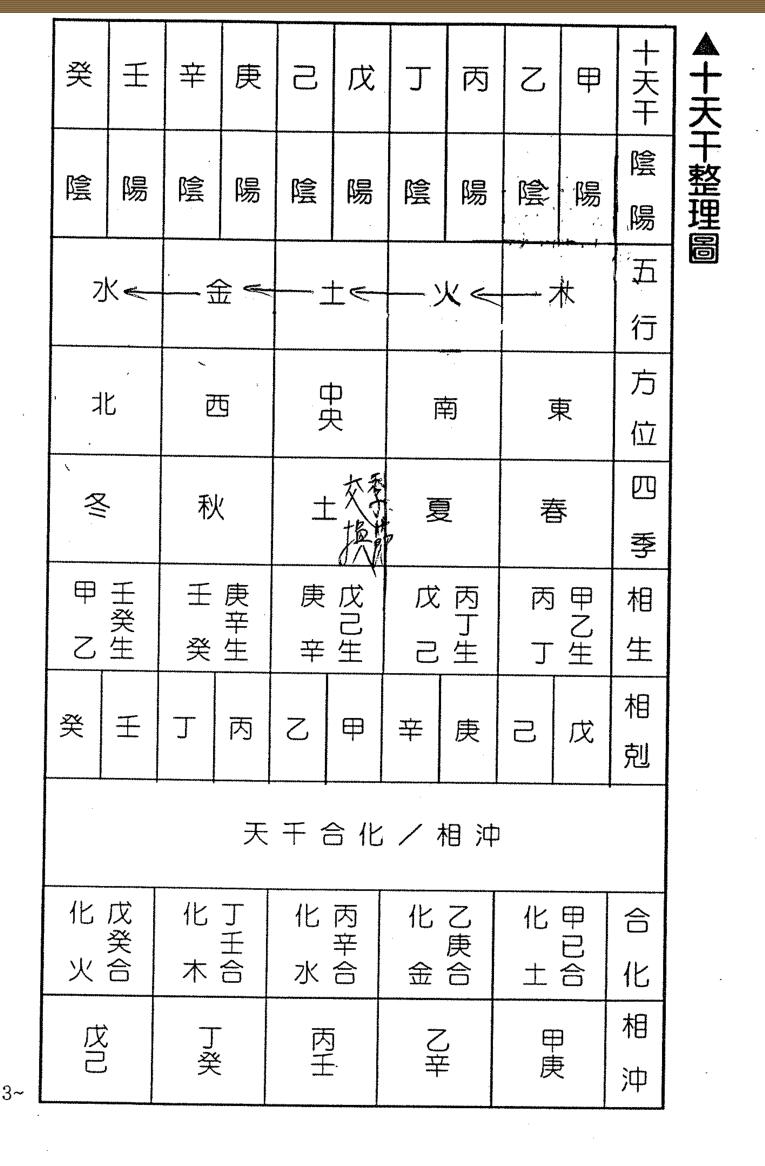 ▲十天干整理圖
十天干 甲 乙 丙 丁 戊 己 庚 辛 壬 癸
陰陽 陽 陰 陽 陰 陽 陰 陽 陰 陽 陰
五行 木 火 土 金 水
方位 東 南 中央 西 北
四季 春 夏 土 秋 冬
季節
交換
相生 甲乙生丙丁 丙丁生戊己 戊己生庚辛 庚辛生壬癸 壬癸生甲乙
相剋 戊 己 庚 辛 甲 乙 丙 丁 壬 癸
天千合化／相沖
合化 甲已合化土 乙庚合化金 丙辛合化水 丁壬合化木 戊癸合化火
相沖 甲庚 乙辛 丙壬 丁癸 戊己
3~